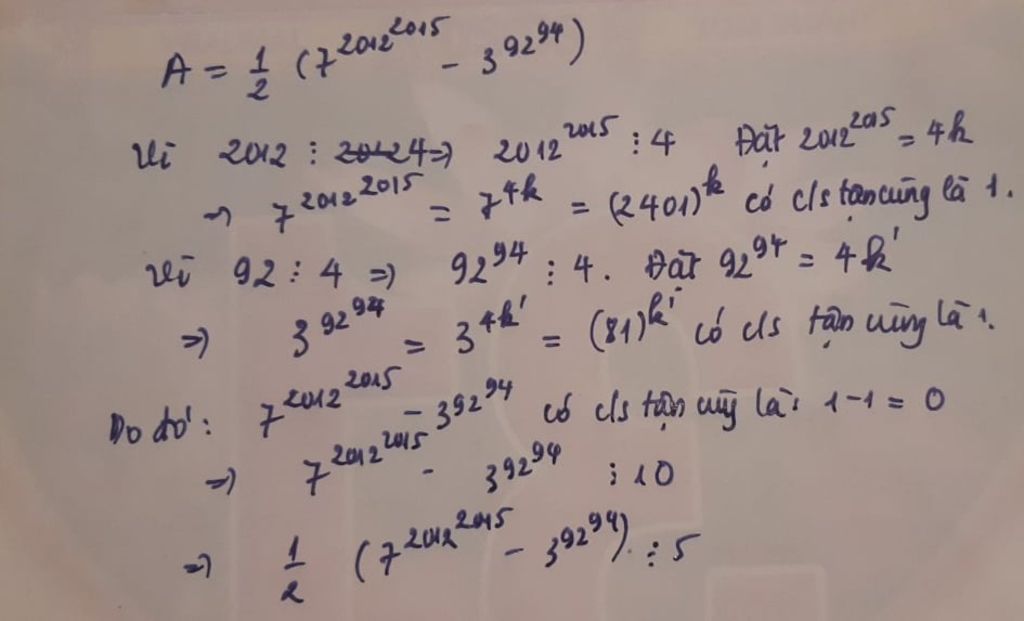 A = 1/2 (7^2012^2015 - 3^92^94)
Vì 2012 ⋮ 2012 4 => 2012^2015 ⋮ 4 Đặt 2012^2015 = 4k
=> 7^2012^2015 = 7^4k = (2401)^k có c/s tận cùng là 1.
Vì 92 ⋮ 4 => 92^94 ⋮ 4. Đặt 92^94 = 4k'
=> 3^92^94 = 3^4k' = (81)^k' có c/s tận cùng là 1.
Do đó: 7^2012^2015 - 3^92^94 có c/s tận cùng là: 1-1 = 0
=> 7^2012^2015 - 3^92^94 ⋮ 10
=> 1/2 (7^2012^2015 - 3^92^94) ⋮ 5